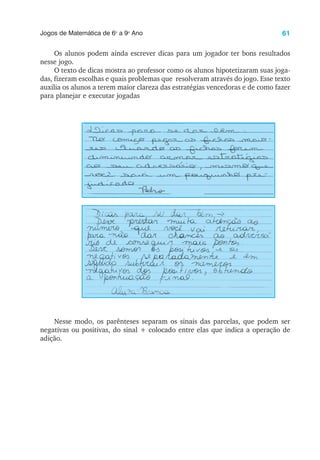 Jogos de Matemática de 6º a 9º Ano 61
Os alunos podem ainda escrever dicas para um jogador ter bons resultados
nesse jogo.
O texto de dicas mostra ao professor como os alunos hipotetizaram suas joga-
das, fizeram escolhas e quais problemas que resolveram através do jogo. Esse texto
auxilia os alunos a terem maior clareza das estratégias vencedoras e de como fazer
para planejar e executar jogadas
Dicas para se dar bem:
No começo pegar as fichas maio-
res. Quando as fichas forem
diminuindo armar estratégias
ao seu adversário, mesmo que
você saia um pouquinho pre-
judicado
Pedro
Dicas para se dar bem →
Deve prestar muita atenção ao
número que você vai retirar,
para não dar chances ao adversá-
rio de conseguir mais pontos.
Deve somar os positivos e os
negativos separadamente e em
seguida subtrair os números
negativos dos positivos, obtendo
a pontuação final.
Nesse modo, os parênteses separam os sinais das parcelas, que podem ser
negativas ou positivas, do sinal + colocado entre elas que indica a operação de
adição.